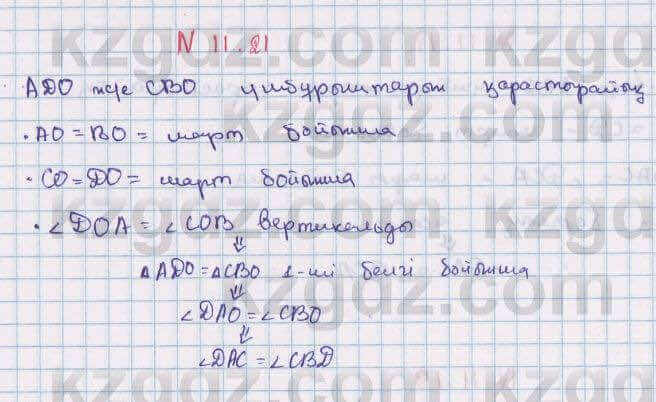 N 11.21
ADO және CBO үшбұрыштарын қарастырайық
• AO = BO = шарт бойынша
• CO = DO = шарт бойынша
• ∠DOA = ∠COB вертикальды
⇓
△ADO = △CBO 1-ші белгі бойынша
⇓
∠DAO = ∠CBO
⇓
∠DAC = ∠CBD
kzgdz.com